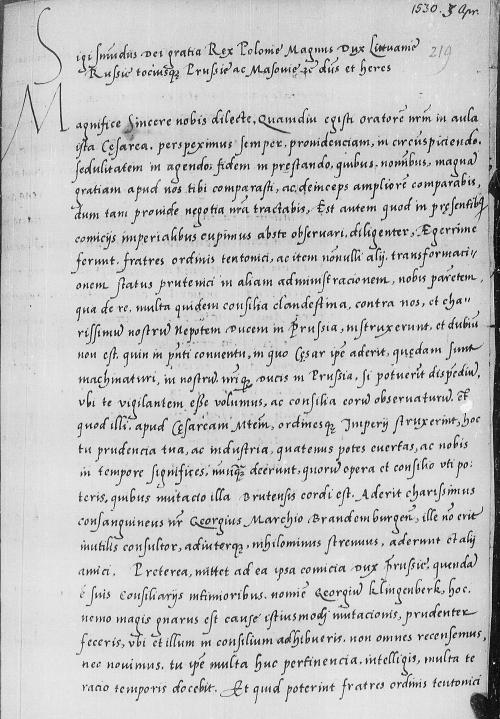 1530. 3 Apr.
219
Sigismūdus Dei gratia Rex Polonie Magnus Dux Littuanie
Russie tociusqȝ Prussie ac Masovie ꝛc dn̄s et heres
Magnifice Sincere nobis dilecte, Quamdiu egisti oratorē nr̄m in aula
ista Cęsarea. perspeximus semper, providenciam, in circūspiciendo.
sedulitatem in agendo, fidem in pręstando, quibus, nomībus, magnā
gratiam apud nos tibi comparasti, ac deinceps ampliorē comparabis,
dum tam provide negotia nr̄a tractabis, Est autem quod in pręsentibȝ
comicijs imperialibus cupimus abste observari, diligenter, Ęgerrime
ferunt. fratres ordinis teutonici, ac item nōnulli alij, transformaci-
onem status prutenici in aliam administracionem, nobis parētem,
qua de re, multa quidem consilia clandestina, contra nos, et cha-
rissimū nostrū Nepotem Ducem in Prussia, instruxerunt, et dubiū
non est. quin in pn̄ti conventu, in quo Cęsar ipē aderit, quędam sunt
machinaturi, in nostrū nr̄iqȝ Ducis in Prussia, si potuerīt dispediū,
vbi te vigilantem esse volumus, ac consilia eorū observaturū. et
quod illi. apud Cęsaream Mtēm, ordinesqȝ Imperij struxerint, hoc
tu prudencia tua, ac industria, quatenus potes evertas, ac nobis
in tempore significes, nunqȝ deerunt, quorū opera et consilio vti po-
teris, quibus mutacio illa Brutensis cordi est. Aderit charissimus
consanguineus nr̄ Georgius Marchio Brandemburgeñ, ille nō erit
inutilis consultor, adiutorqȝ, nihilominus strenuus, aderunt et alij
amici. Preterea, mittet ad ea ipsa comicia Dux Prussiē, quendā
ē suis Consiliarijs intimioribus. nomīe Georgiū Klingenberk, hoc.
nemo magis gnarus est cause istiusmodj mutacionis, prudenter
feceris, vbi et illum in consilium adhibueris. non omnes recensemus,
nec novimus. tu ipē multa huc pertinencia, intelligis, multa te
racio temporis docebit. Et quid poterint fratres ordinis teutonici